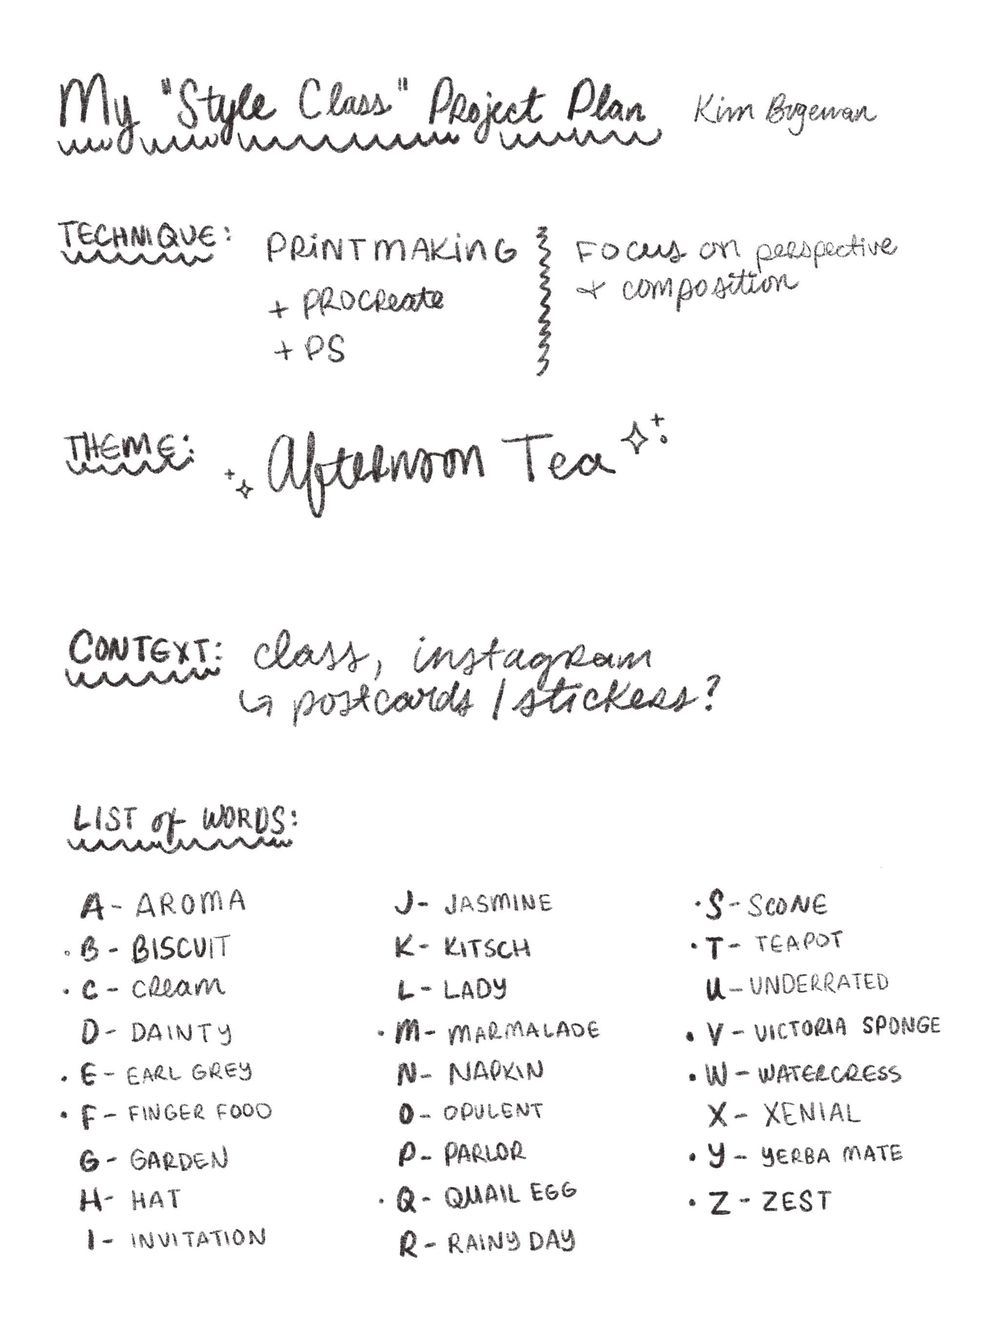 My "Style Class" Project Plan Kim
TECHNIQUE: PRINTMAKING
+ PROCREATE
+ PS
FOCUS on perspective
+ composition
THEME: Afternoon Tea
CONTEXT: class, instagram
↳ postcards / stickers?
LIST of WORDS:
A - AROMA
· B - BISCUIT
· C - CREAM
D - DAINTY
· E - EARL GREY
· F - FINGER FOOD
G - GARDEN
H - HAT
I - INVITATION
J - JASMINE
K - KITSCH
L - LADY
· M - MARMALADE
N - NAPKIN
O - OPULENT
P - PARLOR
· Q - QUAIL EGG
R - RAINY DAY
· S - SCONE
· T - TEAPOT
U - UNDERRATED
· V - VICTORIA SPONGE
· W - WATERCRESS
X - XENIAL
· Y - YERBA MATE
· Z - ZEST